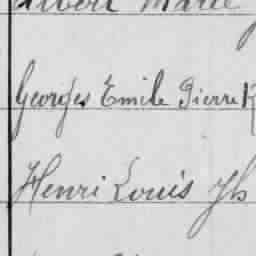 Albert Marie
Georges Emile Pierre
Henri Louis Jh